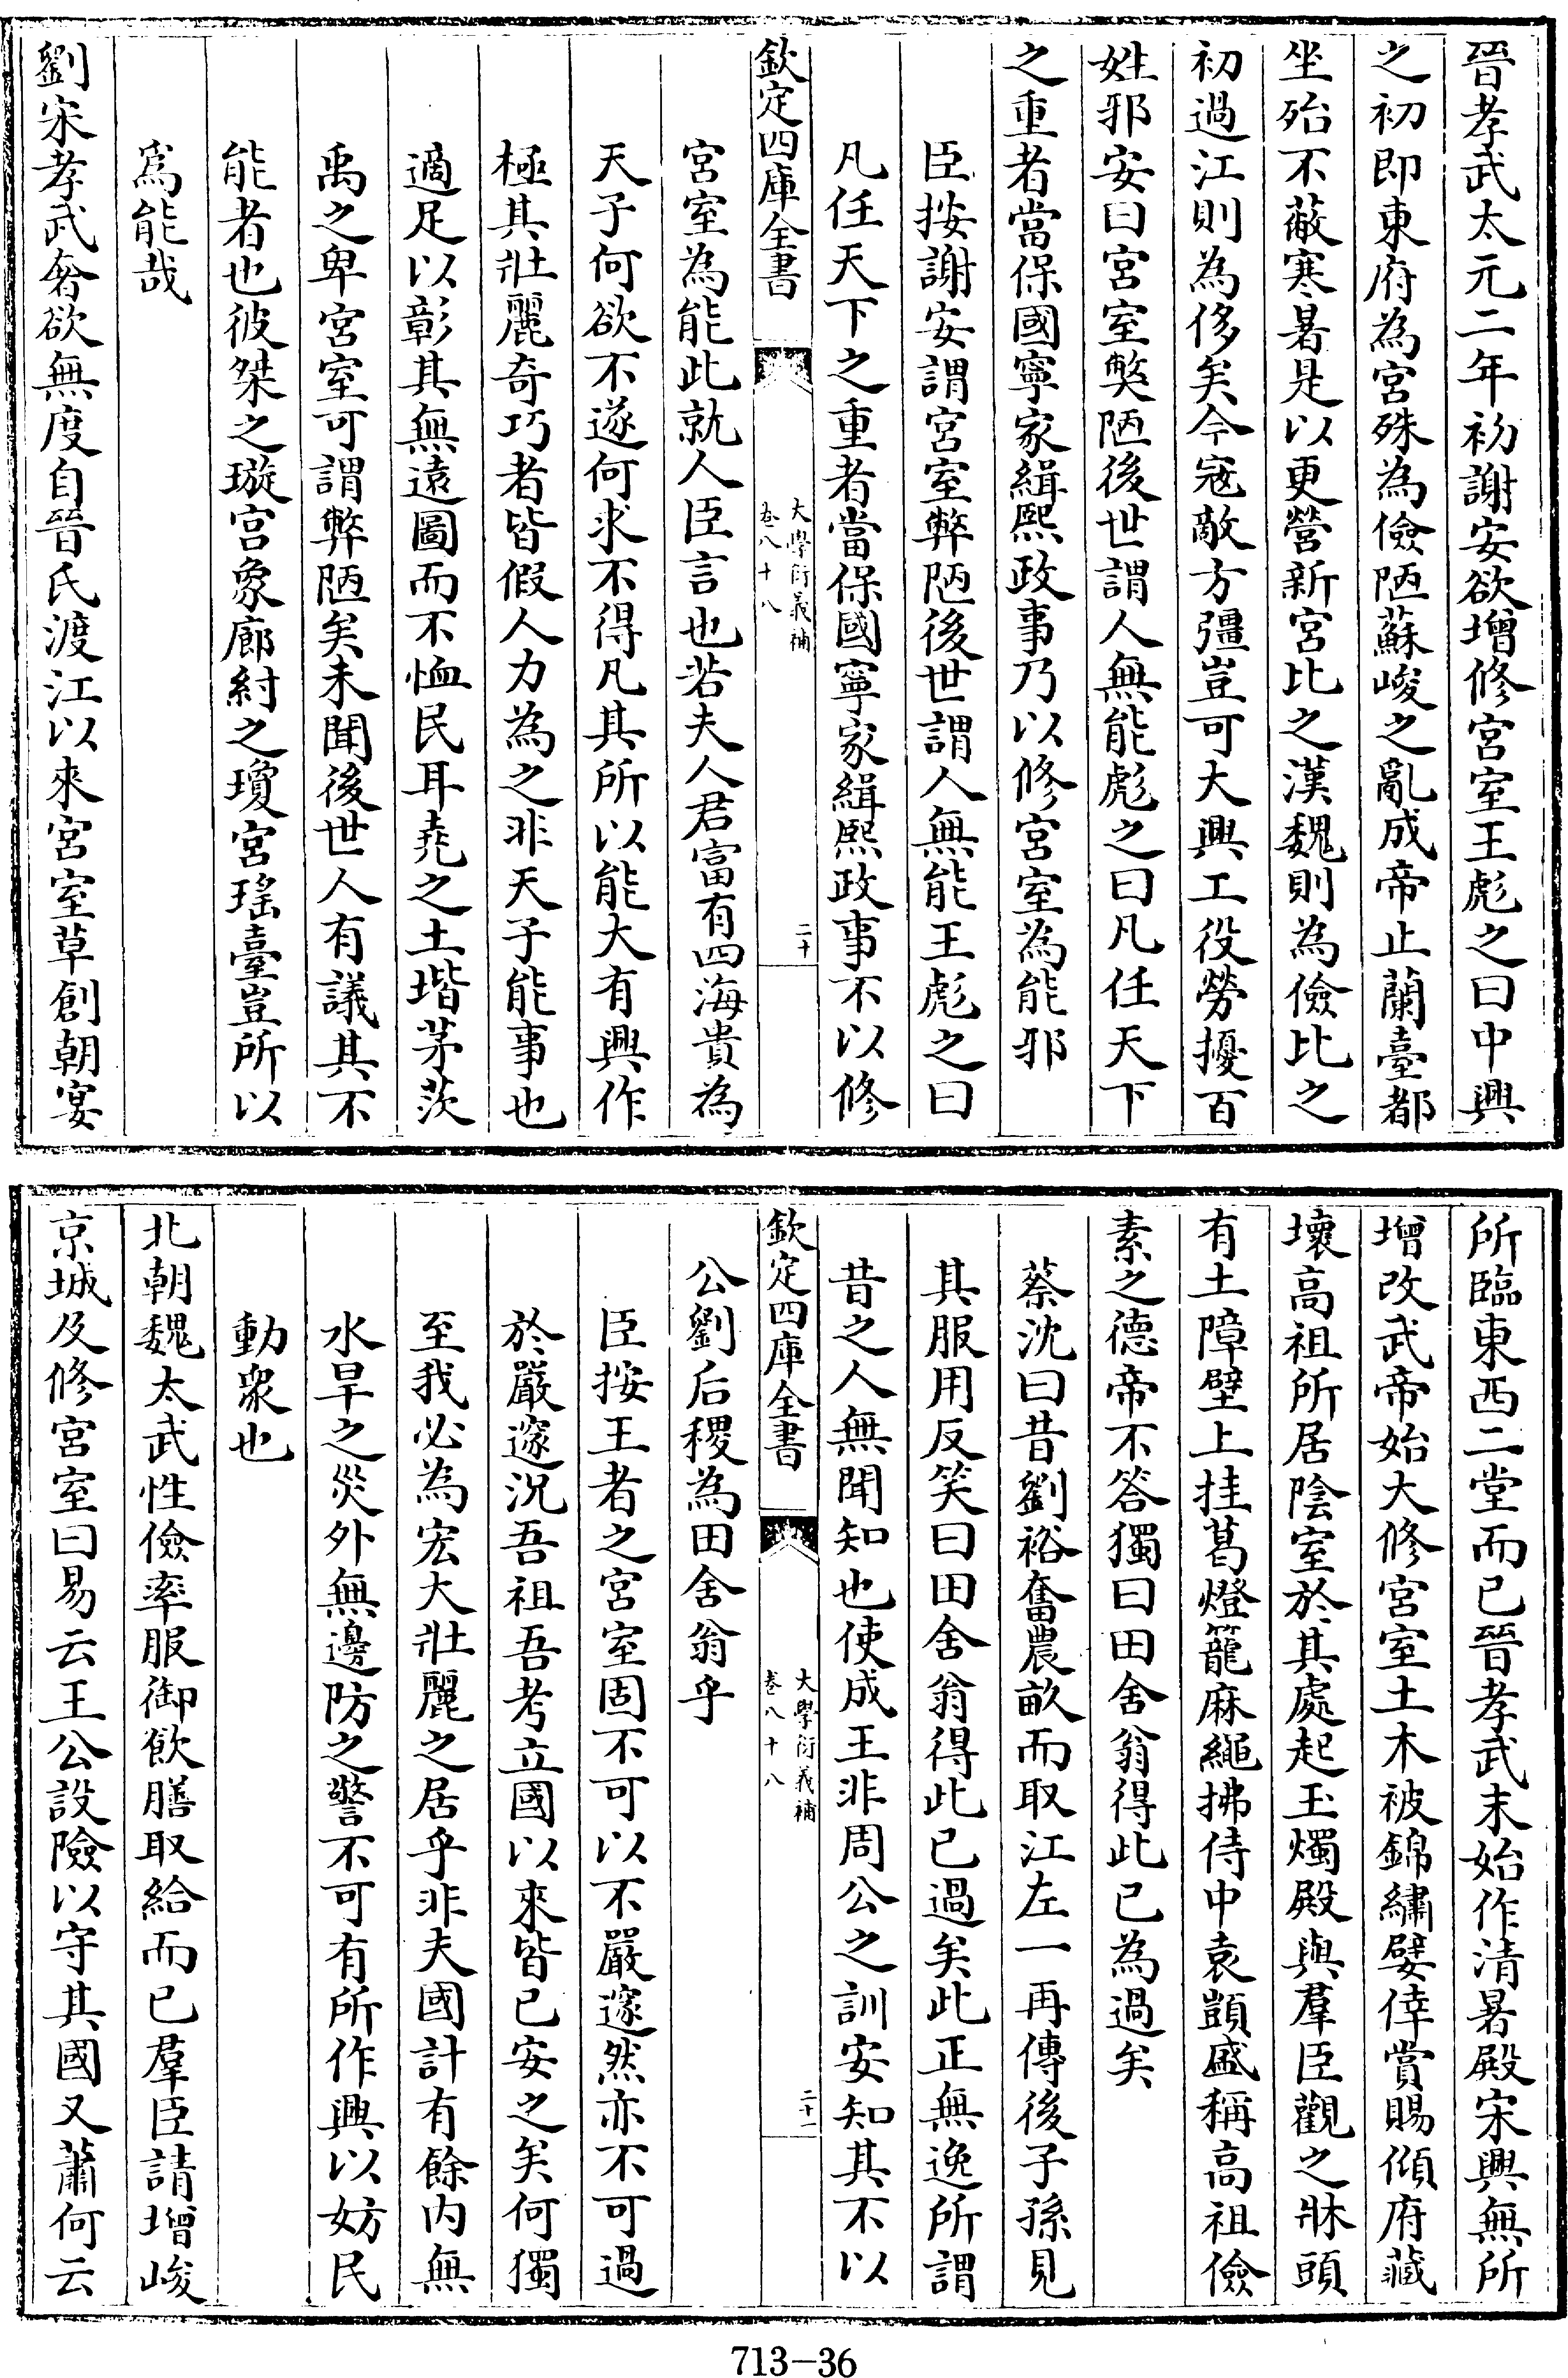 晉孝武太元二年初謝安欲增修宮室王彪之曰中興
之初即東府為宮殊為儉陋蘇峻之亂成帝止蘭臺都
坐殆不蔽寒暑是以更營新宮比之漢魏則為儉比之
初過江則為侈矣今寇敵方彊豈可大興工役勞擾百
姓邪安曰宮室弊陋後世謂人無能彪之曰凡任天下
之重者當保國寧家緝熙政事乃以修宮室為能邪
臣按謝安謂宮室弊陋後世謂人無能王彪之曰
凡任天下之重者當保國寧家緝熙政事不以修
欽定四庫全書
大學衍義補
卷八十八
二十
宮室為能此就人臣言也若夫人君富有四海貴為
天子何欲不遂何求不得凡其所以能大有興作
極其壯麗奇巧者皆假人力為之非天子能事也
適足以彰其無遠圖而不恤民耳堯之土堦茅茨
禹之卑宮室可謂弊陋矣未聞後世人有議其不
能者也彼桀之璇宮象廊紂之瓊宮瑤臺豈所以
為能哉
劉宋孝武奢欲無度自晉氏渡江以來宮室草創朝宴
所臨東西二堂而已晉孝武末始作清暑殿宋興無所
增改武帝始大修宮室土木被錦繡嬖倖賞賜傾府藏
壞高祖所居陰室於其處起玉燭殿與羣臣觀之牀頭
有土障壁上挂葛燈籠麻繩拂侍中袁顗盛稱高祖儉
素之德帝不答獨曰田舍翁得此已為過矣
蔡沈曰昔劉裕奮農畝而取江左一再傳後子孫見
其服用反笑曰田舍翁得此已過矣此正無逸所謂
昔之人無聞知也使成王非周公之訓安知其不以
欽定四庫全書
大學衍義補
卷八十八
二十一
公劉后稷為田舍翁乎
臣按王者之宮室固不可以不嚴邃然亦不可過
於嚴邃況吾祖吾考立國以來皆已安之矣何獨
至我必為宏大壯麗之居乎非夫國計有餘內無
水旱之災外無邊防之警不可有所作興以妨民
動衆也
北朝魏太武性儉率服御飲膳取給而已羣臣請增峻
京城及修宮室曰易云王公設險以守其國又蕭何云
713-36